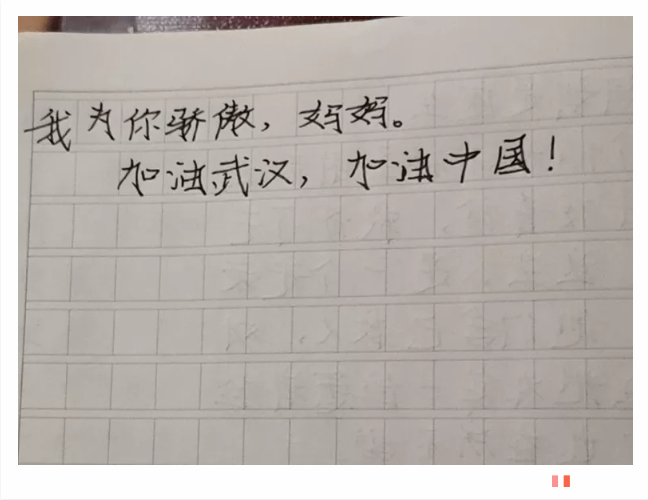 我为你骄傲，妈妈。
加油武汉，加油中国！